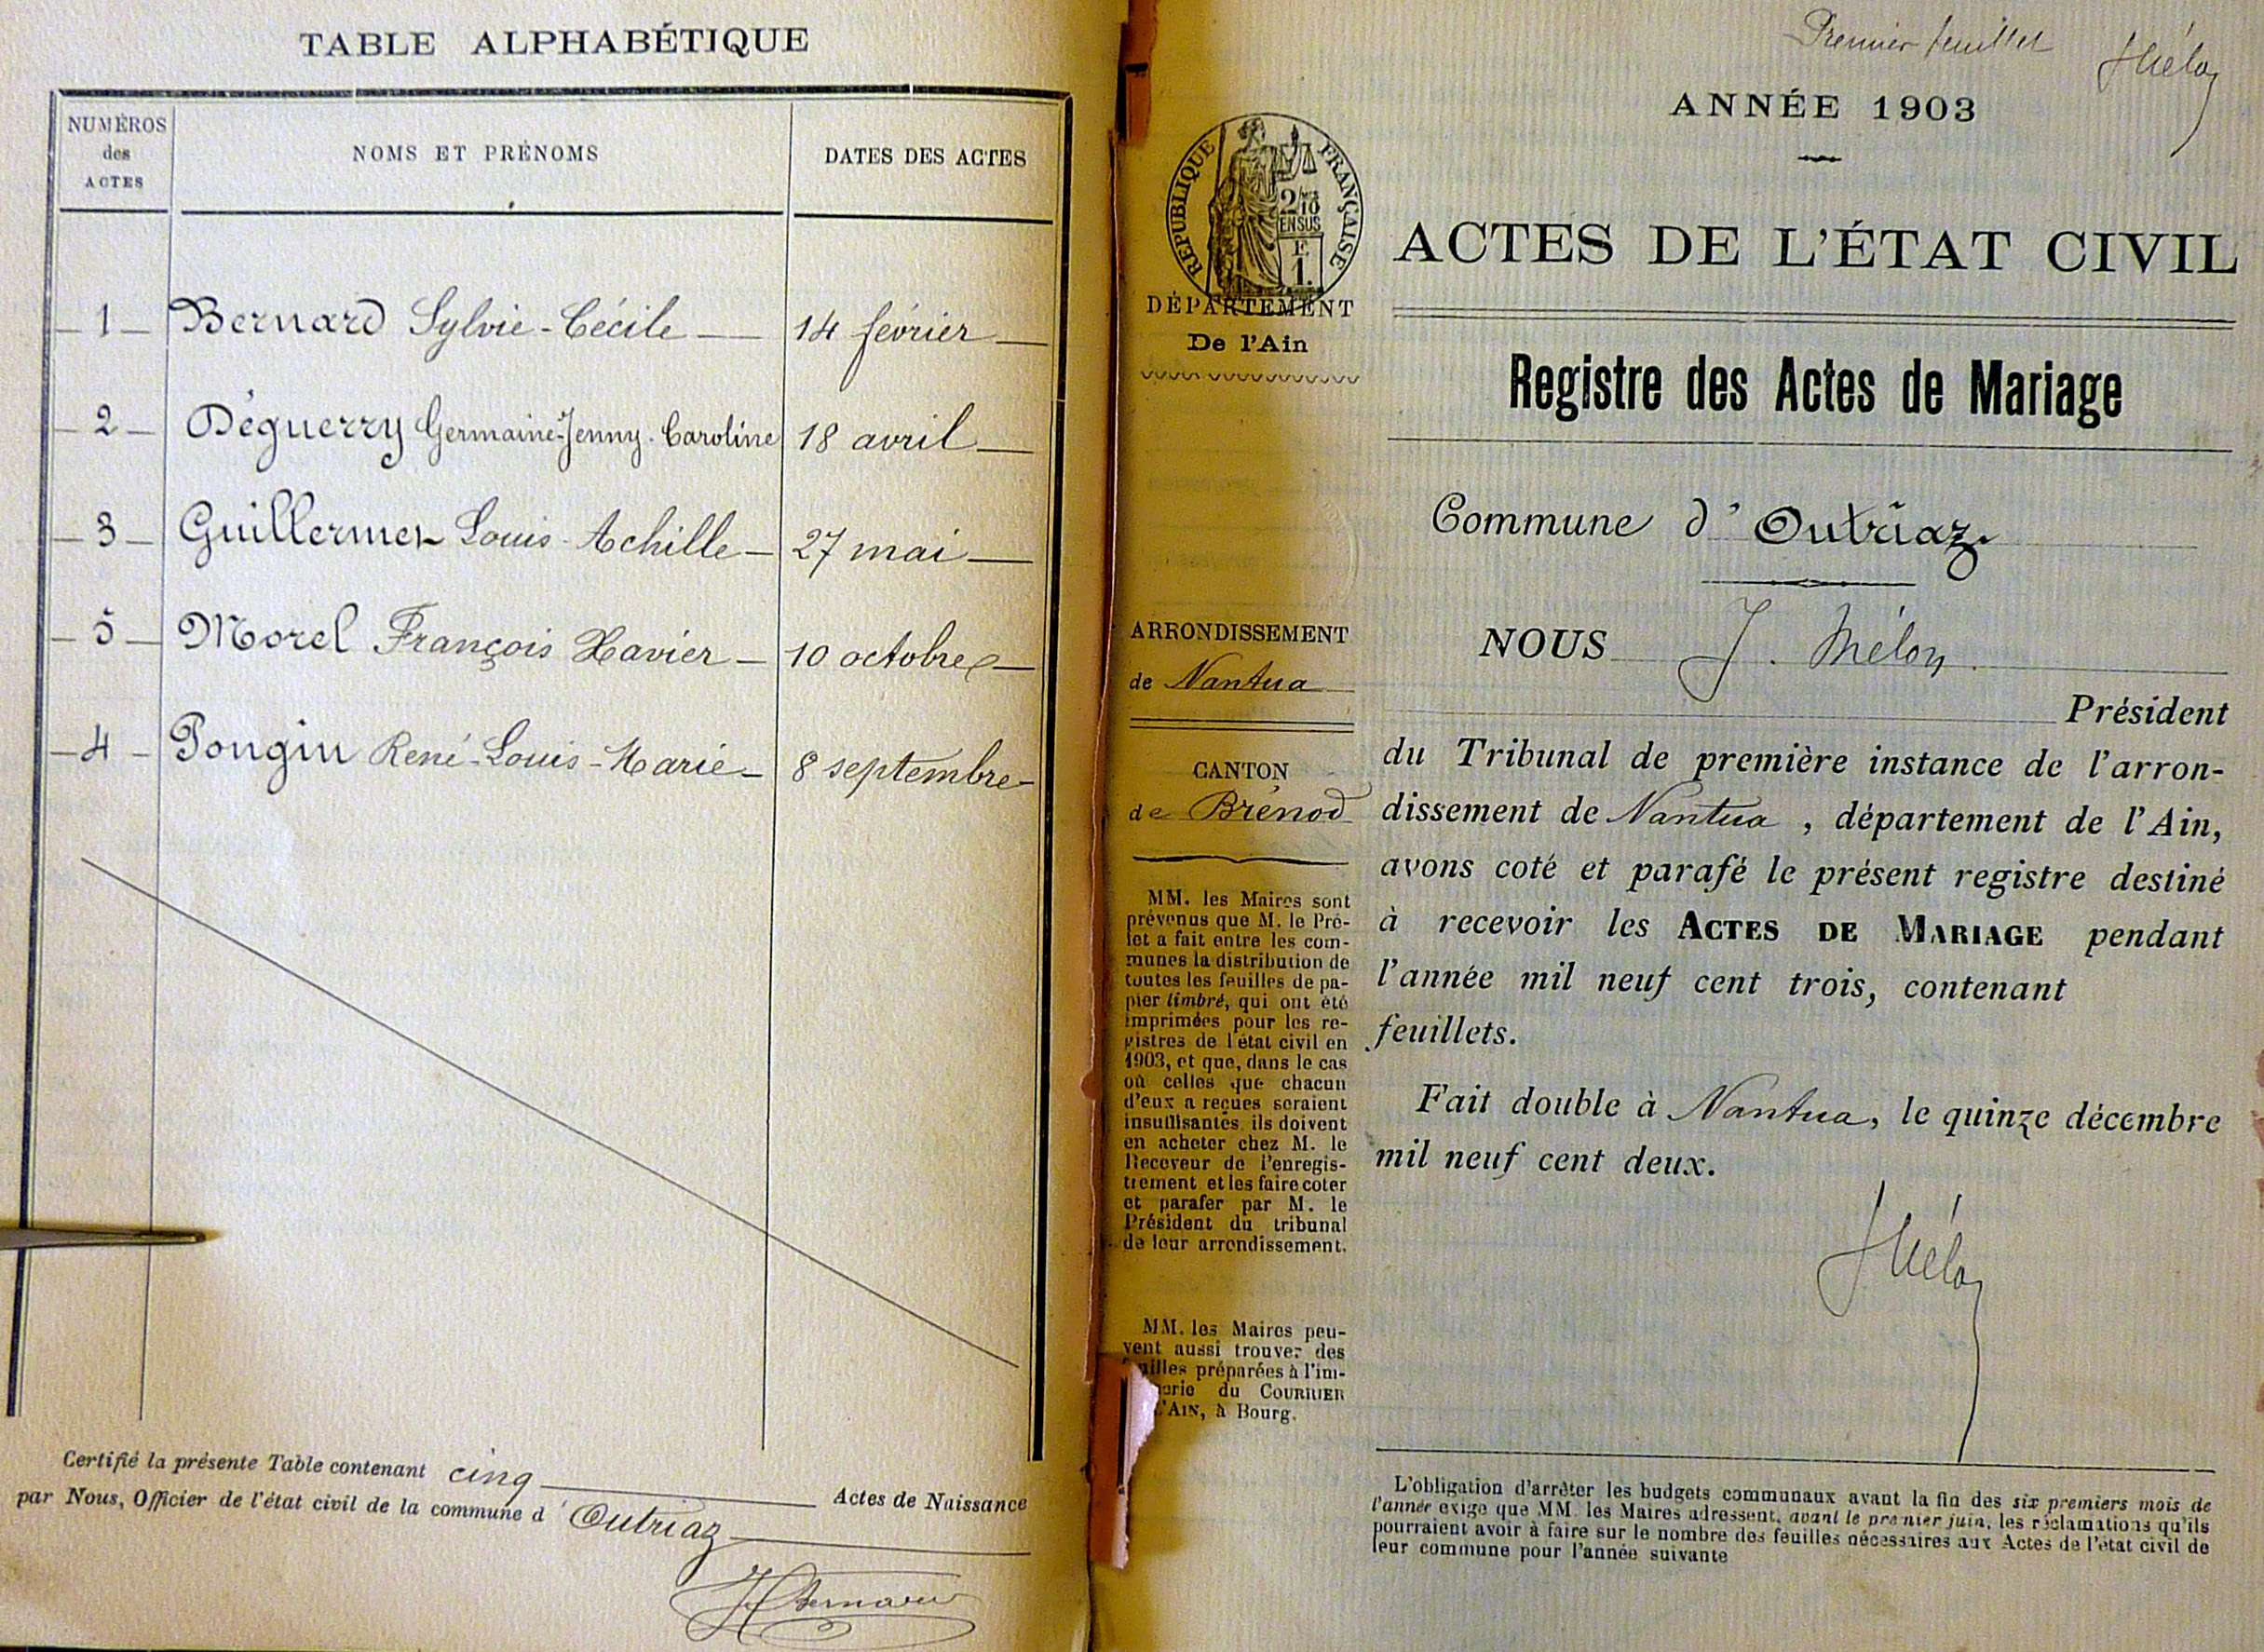 TABLE ALPHABÉTIQUE
NUMÉROS des ACTES
NOMS ET PRÉNOMS
DATES DES ACTES
1 Bernard Sylvie-Cécile 14 février
2 Déguerry Germaine-Jenny-Caroline 18 avril
3 Guillermet Louis-Achille 27 mai
5 Morel François Xavier 10 octobre
4 Pongin René-Louis-Marie 8 septembre
Certifié la présente Table contenant cinq Actes de Naissance
par Nous, Officier de l'état civil de la commune d'Outriaz
Bernard
Premier feuillet
ANNÉE 1903
RÉPUBLIQUE FRANÇAISE
2/10
EN SUS
F
1.
DÉPARTEMENT
De l'Ain
ARRONDISSEMENT
de Nantua
CANTON
de Brénod
MM. les Maires sont
prévenus que M. le Pré-
fet a fait entre les com-
munes la distribution de
toutes les feuilles de pa-
pier timbré, qui ont été
imprimées pour les re-
gistres de l'état civil en
1903, et que, dans le cas
où celles que chacun
d'eux a reçues seraient
insuffisantes, ils doivent
en acheter chez M. le
Receveur de l'enregis-
trement et les faire coter
et parafer par M. le
Président du tribunal
de leur arrondissement.
MM. les Maires peu-
vent aussi trouver des
feuilles préparées à l'im-
primerie du COURRIER
DE L'AIN, à Bourg.
ACTES DE L'ÉTAT CIVIL
Registre des Actes de Mariage
Commune d'Outriaz
NOUS J. Méloy
Président
du Tribunal de première instance de l'arron-
dissement de Nantua, département de l'Ain,
avons coté et parafé le présent registre destiné
à recevoir les ACTES DE MARIAGE pendant
l'année mil neuf cent trois, contenant
feuillets.
Fait double à Nantua, le quinze décembre
mil neuf cent deux.
L'obligation d'arrêter les budgets communaux avant la fin des six premiers mois de
l'année exige que MM. les Maires adressent, avant le premier juin, les réclamations qu'ils
pourraient avoir à faire sur le nombre des feuilles nécessaires aux Actes de l'état civil de
leur commune pour l'année suivante